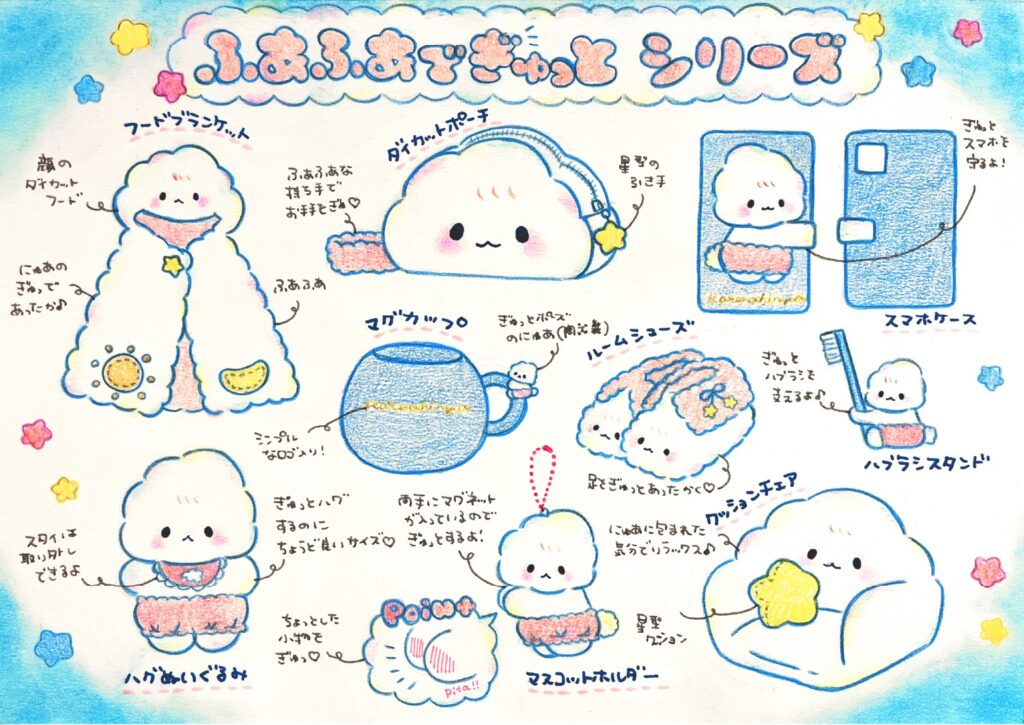 ふあふあでぎゅっと シリーズ
フードブランケット
顔の
ダイカット
フード
にゅあの
ぎゅっで
あったか♪
ふあふあ
ダイカットポーチ
ふあふあな
持ち手で
お手手とぎゅ♡
星型の
引き手
ぎゅっと
スマホを
守るよ!
スマホケース
マグカップ
ぎゅっとポーズ
のにゅあ(陶器製)
シンプル
なロゴ入り!
ルームシューズ
足をぎゅっとあったかく♡
ぎゅっと
ハブラシを
支えるよ♪
ハブラシスタンド
スタイは
取り外し
できるよ
ぎゅっとハグ
するのに
ちょうど良いサイズ♡
ハグぬいぐるみ
両手にマグネット
が入っているので
ぎゅっとするよ!
ちょっとした
小物を
ぎゅっ♡
Point
pita!!
マスコットホルダー
クッションチェア
にゅあに包まれた
気分でリラックス♪
星型
クッション